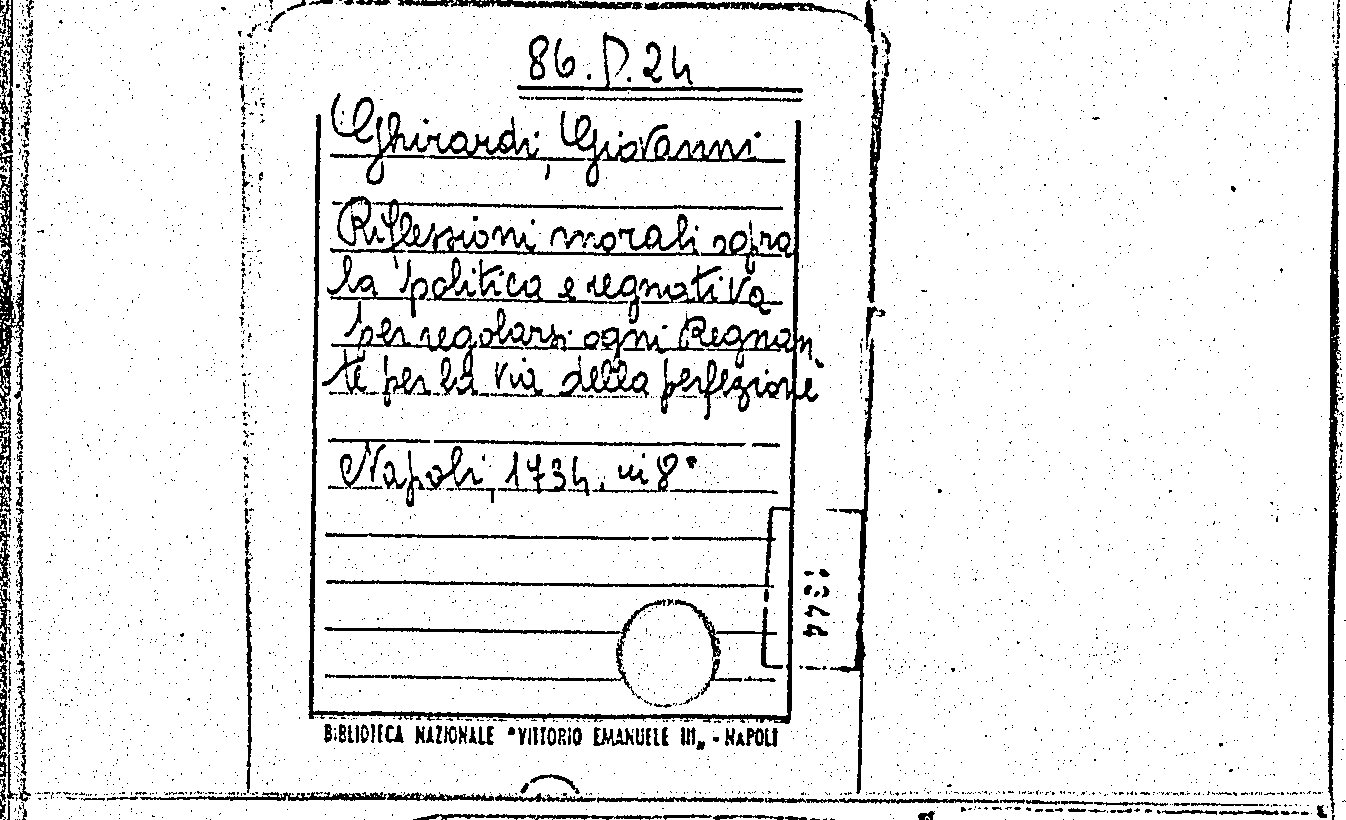 86.D.24
Ghirardi, Giovanni
Riflessioni morali sopra
la politica e regnativa
per regolarsi ogni Regnan-
te per la via della perfezione
Napoli, 1734. in 8°
BIBLIOTECA NAZIONALE "VITTORIO EMANUELE III„ - NAPOLI